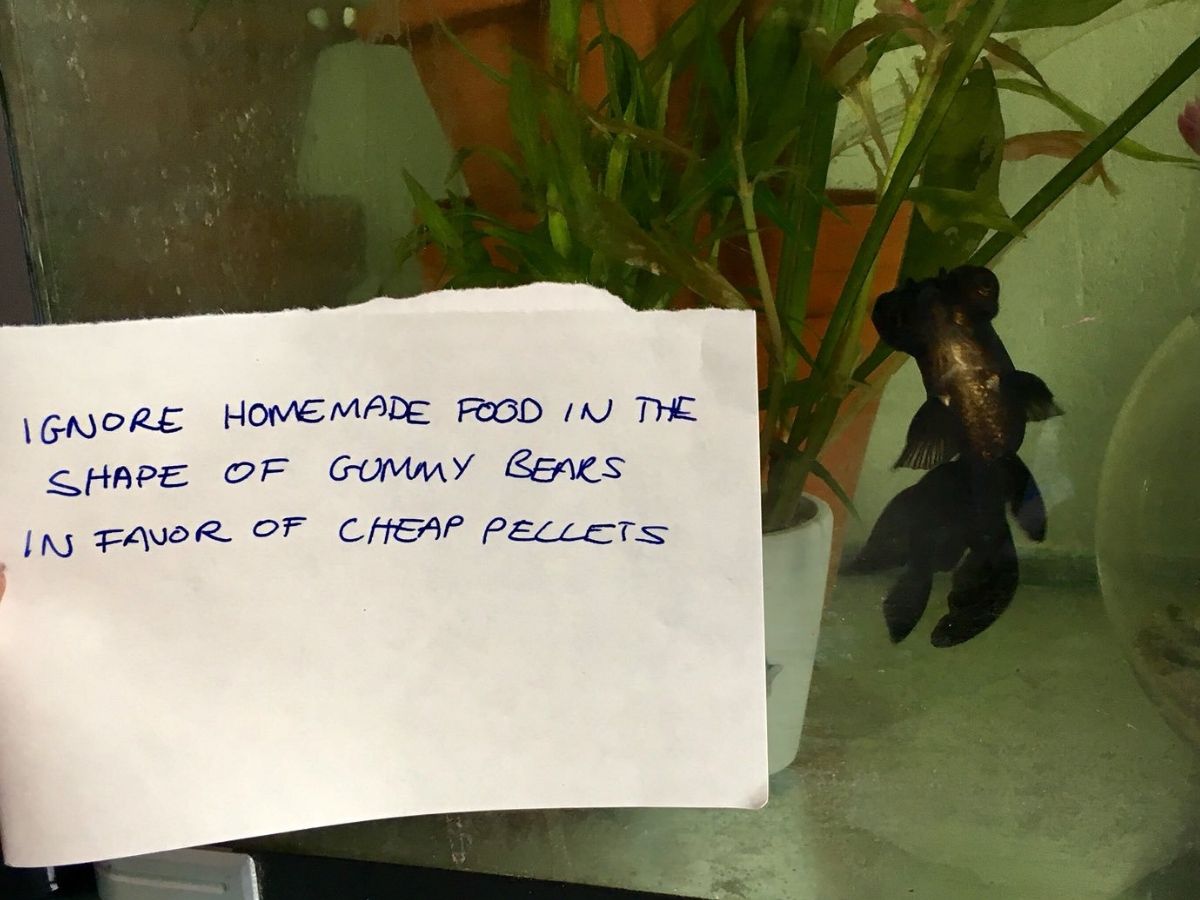 IGNORE HOMEMADE FOOD IN THE
SHAPE OF GUMMY BEARS
IN FAVOR OF CHEAP PELLETS